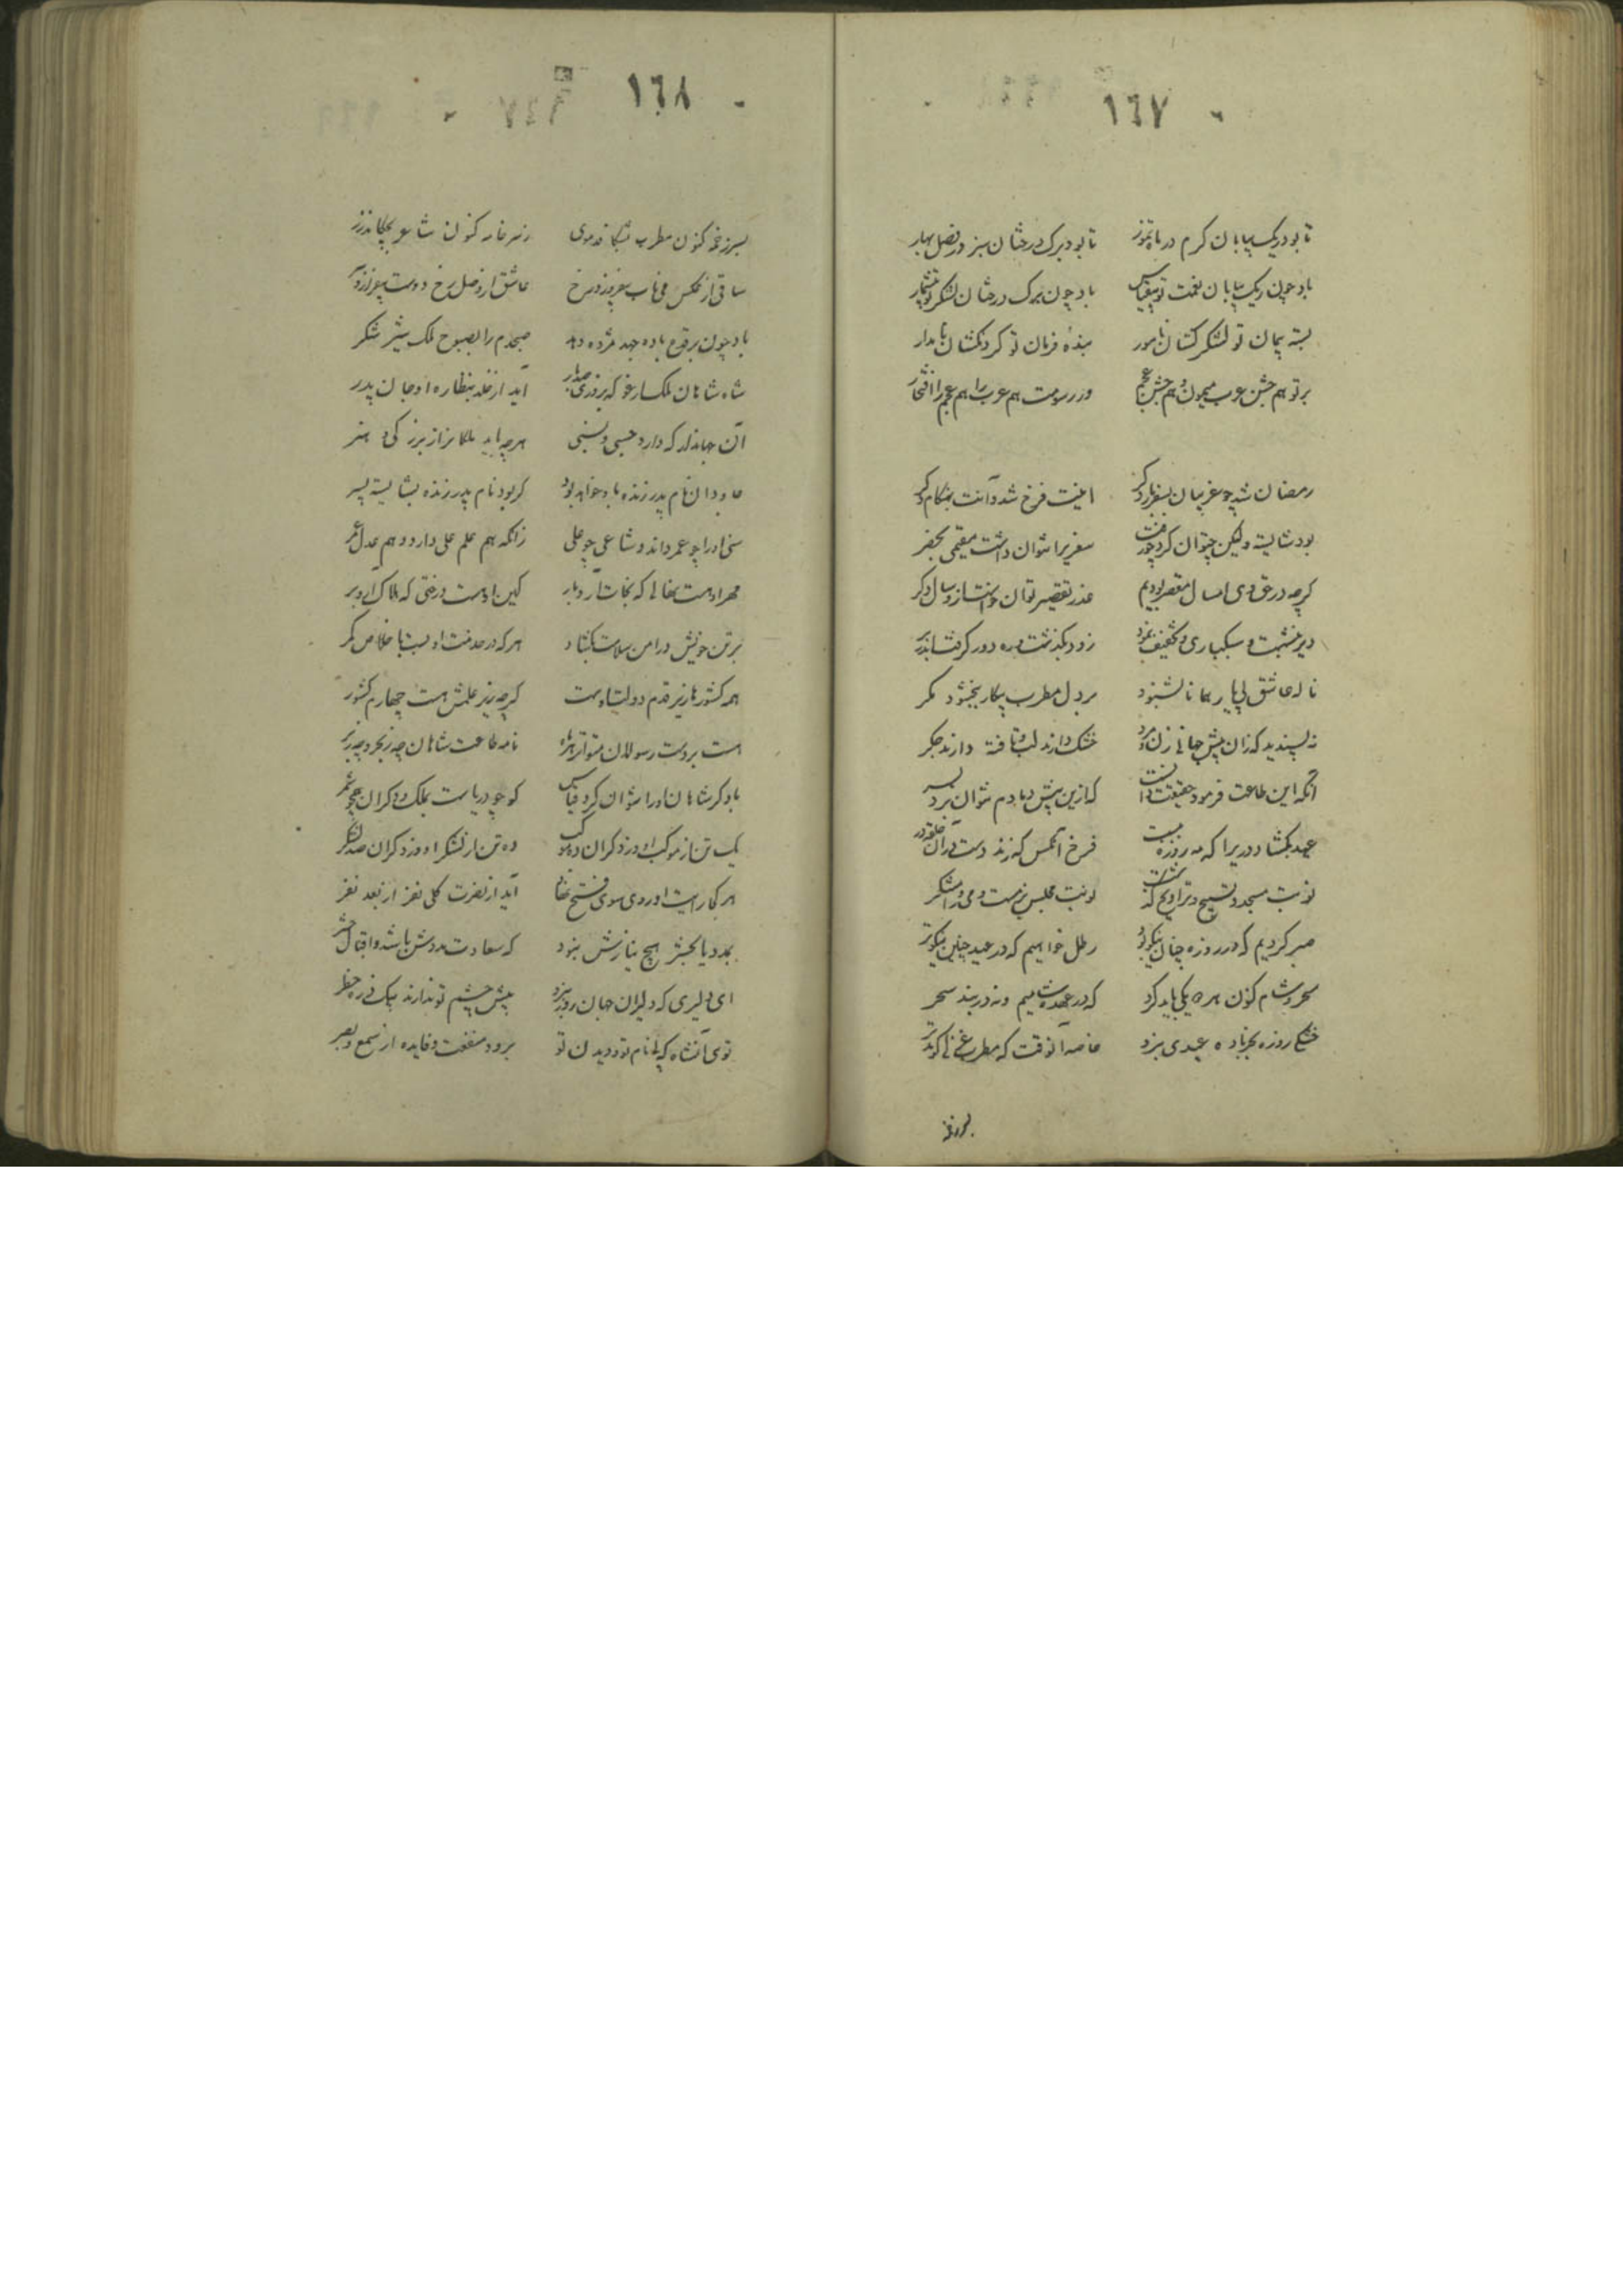 ١٦٧
تا بود ریک بیابان کرم در ماه تموز تا بود برک درختان سبز در فصل بهار
باد چون ریک بیابان نعمت تو بیقیاس باد چون برک درختان لشکر تو بیشمار
بسته پیمان تو لشکر کشان نامور بندهٔ فرمان تو کردنکشان نامدار
بر تو هم جشن عرب میمون و هم جشن عجم وز رسومت هم عرب را هم عجم را افتخار
رمضان شد چو غریبان بسفر بار دکر اینت فرخ شدن و آنت بهنکام دکر
بود شایسته ولیکن چتوان کرد چو رفت سفریرا نتوان داشت مقیمی بحضر
کرچه در حق وی امسال مقصر بودیم عذر تقصیر توان خواست ازو سال دکر
دیر ننشست و سبکباری و تخفیف نمود زود بکذشت و ره دور کرفت اندر بر
ناله عاشق بی یار همانا نشنود بر دل مطرب بیکار ببخشود مکر
نه پسندید که زان پیش جهانی زن و مرد خشک دارند لب و تافته دارند جکر
آنکه این طاعت فرمود حقیقت دانست که ازین پیش دمادم نتوان برد بسر
عید بکشاد در یرا که مه روزه ببست فرخ آنکس که زند دست در آن حلقه در
نوبت مسجد و تسبیح و تراویح کذشت نوبت مجلس بزمست و می و رامشکر
صبر کردیم که در روزه چنان نیکو بود رطل خواهیم که در عید چنین نیکوتر
سحر و شام کنون هر دو یکی باید کرد که در عهده شامیم و نه در بند سحر
خشکی روزه بجز باده عیدی نبرد خاصه آنوقت که مطرب غزلی کوید تر
بسر زخمه
١٦٨
بسر زخمه کنون مطرب بشکافد موی زسر خامه کنون شاعر بچکاند زر
ساقی از عکس می ناب بیفروزد رخ عاشق از وصل رخ دوست بیفرازد سر
باد چون بر قدح باده جهد مژده دهد صبحدم را بصبوح ملک شیر شکر
شاه شاهان ملک ارغو که بروزی صد بار آید از خلد بنظاره او جان پدر
آن جهاندار که دارد حسبی و نسبی هرچه باید ملکانرا ز بزرکی و هنر
جاودان نام پدر زنده بدو خواهد بود کر بود نام پدر زنده بشایسته پسر
سنی او را چو عمر داند و شاعی چو علی زانکه هم علم علی دارد و هم عدل عمر
مهر اوست نهالی که نجات آرد بار کین اوست درختی که هلاک آرد بر
بر تن خویش در امن سلامت بکشاد هر که در خدمت او بست با خلاص کمر
همه کشورها زیر قدم دولت اوست کرچه زیر علمش هست چهارم کشور
هست بر دست رسولان متواتر بر شاه نامه طاعت شاهان چه ز بحر و چه ز بر
با دکر شاهان او را نتوان کرد قیاس کو چو دریاست بملک و دکران چو شمر
یک تن از موکب او و ز دکران ده موکب ده تن از لشکر او و ز دکران صد لشکر
هر کجا رایت او روی سوی فتح نهاد آید از نصرت کلی نفر از بعد نفر
بمدد یا بحشر هیچ نیازش نبود که سعادت مددش باشد و اقبال حشر
ای دلیری که دلیران جهان روز نبرد پیش چشم تو ندارند بیک ذره خطر
توی آنشاه که بی نام تو و دیدن تو برود منفعت و فایده از سمع و بصر